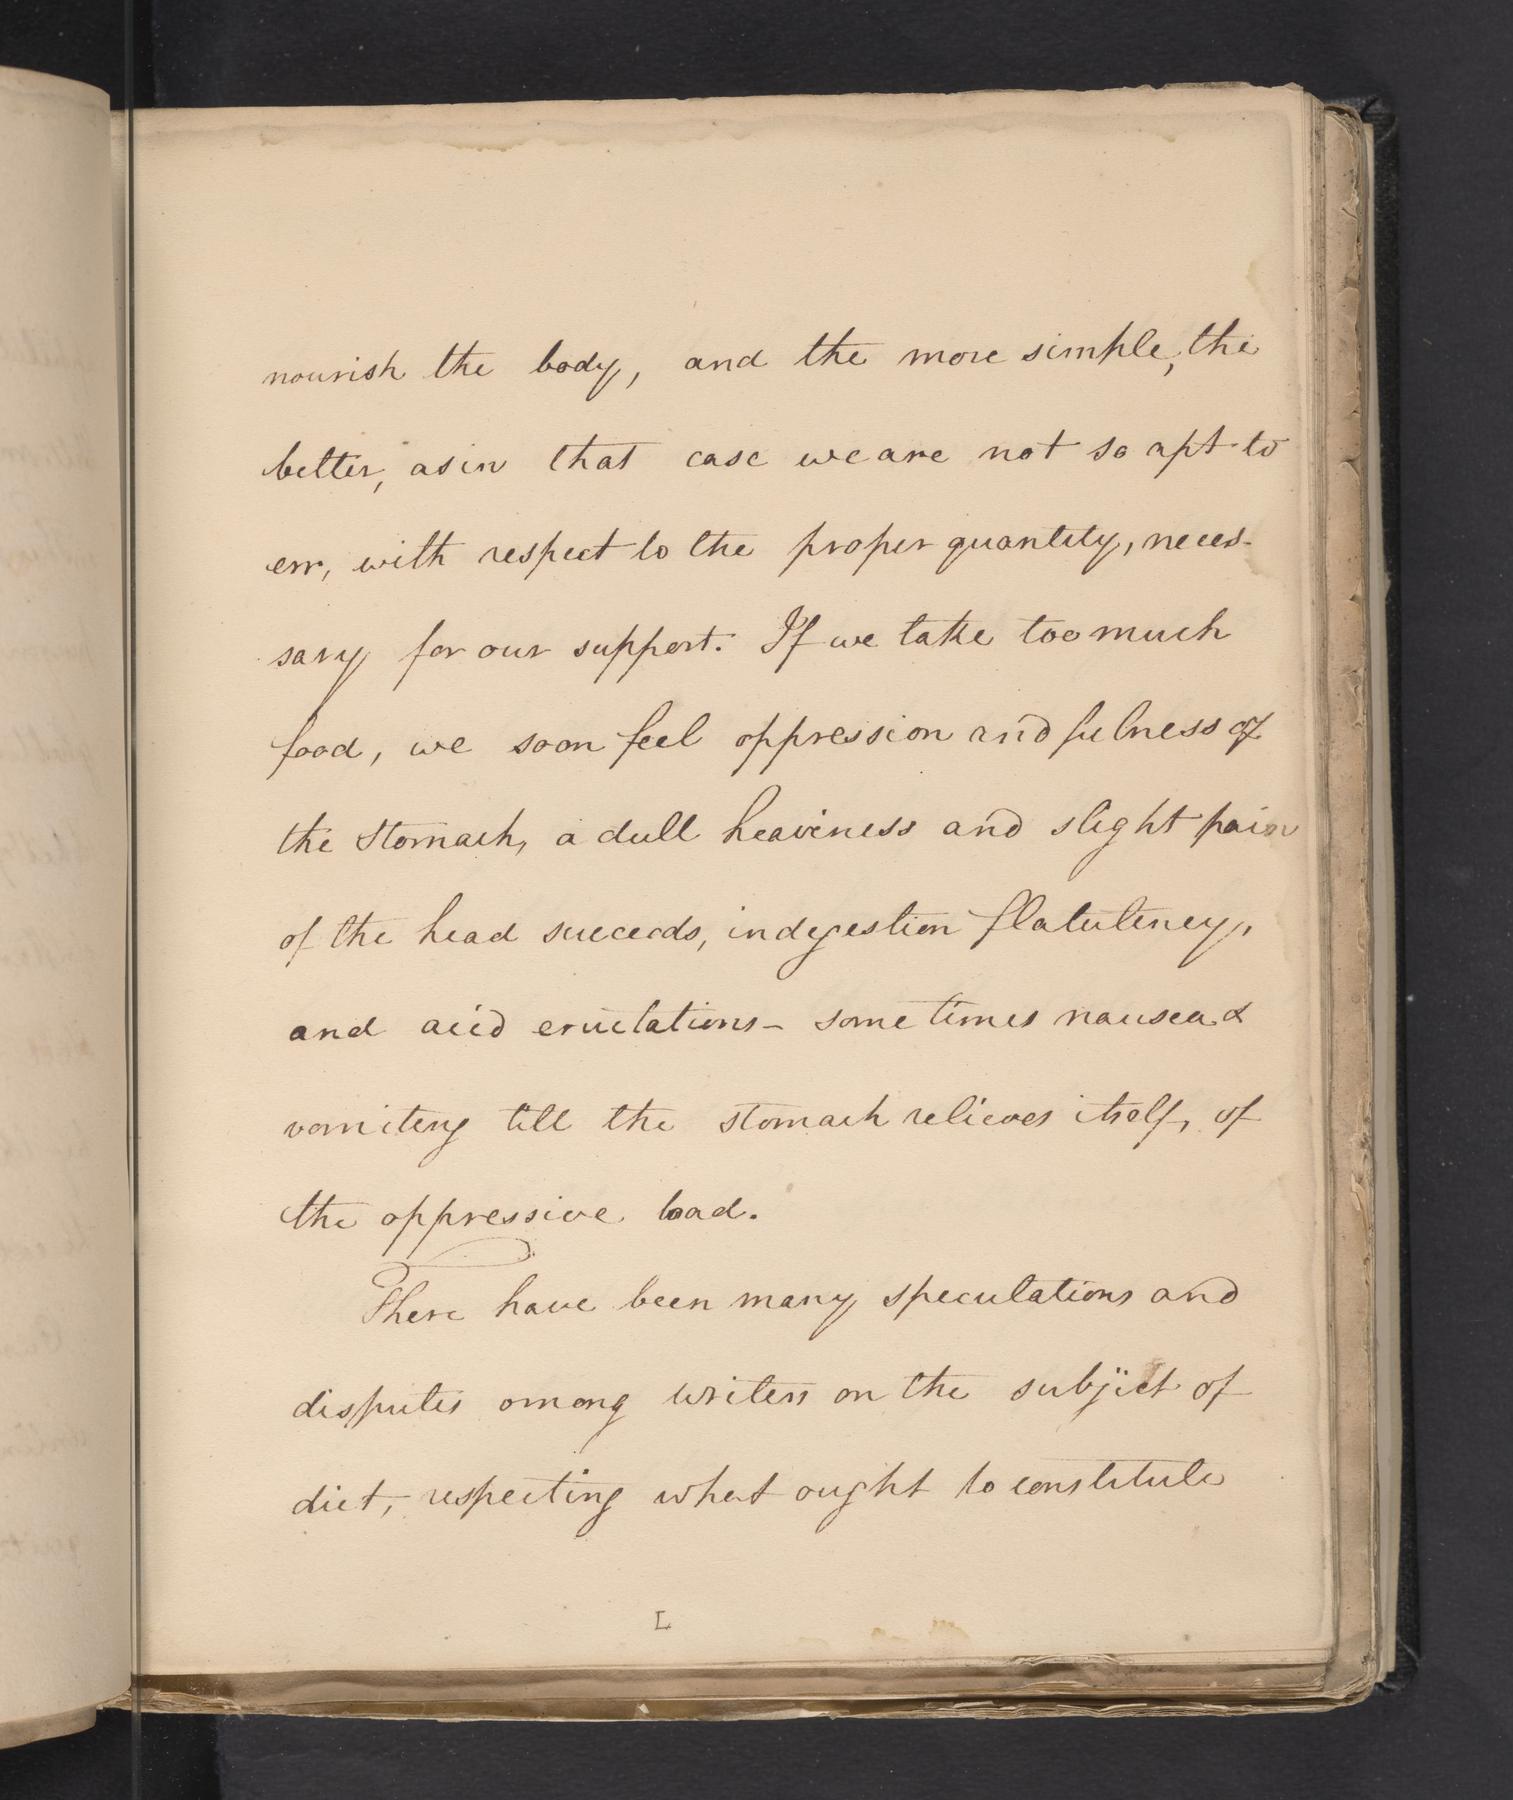 nourish the body, and the more simple, the
better, as in that case we are not so apt to
err, with respect to the proper quantity, neces-
sary for our support. If we take too much
food, we soon feel oppression and fulness of
the stomach, a dull heaviness and slight pain
of the head succeeds, indegestion flatulency,
and acid eructations - some times nausea &
vomiting till the stomach relieves itself, of
the oppressive load.
There have been many speculations and
disputes among writers on the subject of
diet, respecting what ought to constitute
L